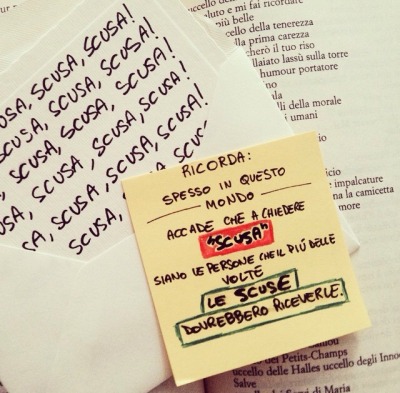 SCUSA, SCUSA, SCUSA!
SCUSA, SCUSA, SCUSA!
SCUSA, SCUSA, SCUSA!
SCUSA, SCUSA, SCUSA!
SCUSA, SCUSA, SCUSA!
SCUSA, SCUSA
RICORDA:
SPESSO IN QUESTO
MONDO
ACCADE CHE A CHIEDERE
"SCUSA"
SIANO LE PERSONE CHE IL PIÚ DELLE
VOLTE
LE SCUSE
DOVREBBERO RICEVERLE.
uccello del
aluto e mi fai ricordare
più bello
cello della tenerezza
lla prima carezza
cherò il tuo riso
llaiato lassù sulla torre
humour portatore
lli della morale
i umani
icio
impalcature
na la camicetta
dei Petits-Champs
uccello delle Halles uccello degli Inno
Salve
di Maria